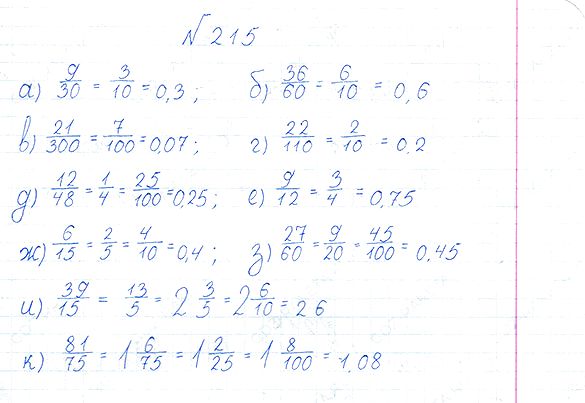 №215
а) 9/30 = 3/10 = 0,3; б) 36/60 = 6/10 = 0,6
в) 21/300 = 7/100 = 0,07; г) 22/110 = 2/10 = 0,2
д) 12/48 = 1/4 = 25/100 = 0,25; е) 9/12 = 3/4 = 0,75
ж) 6/15 = 2/5 = 4/10 = 0,4; з) 27/60 = 9/20 = 45/100 = 0,45
и) 39/15 = 13/5 = 2 3/5 = 2 6/10 = 2 6
к) 81/75 = 1 6/75 = 1 2/25 = 1 8/100 = 1,08